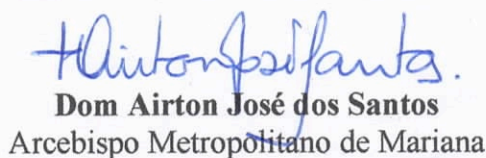 +Airton José Santos.
Dom Airton José dos Santos
Arcebispo Metropolitano de Mariana